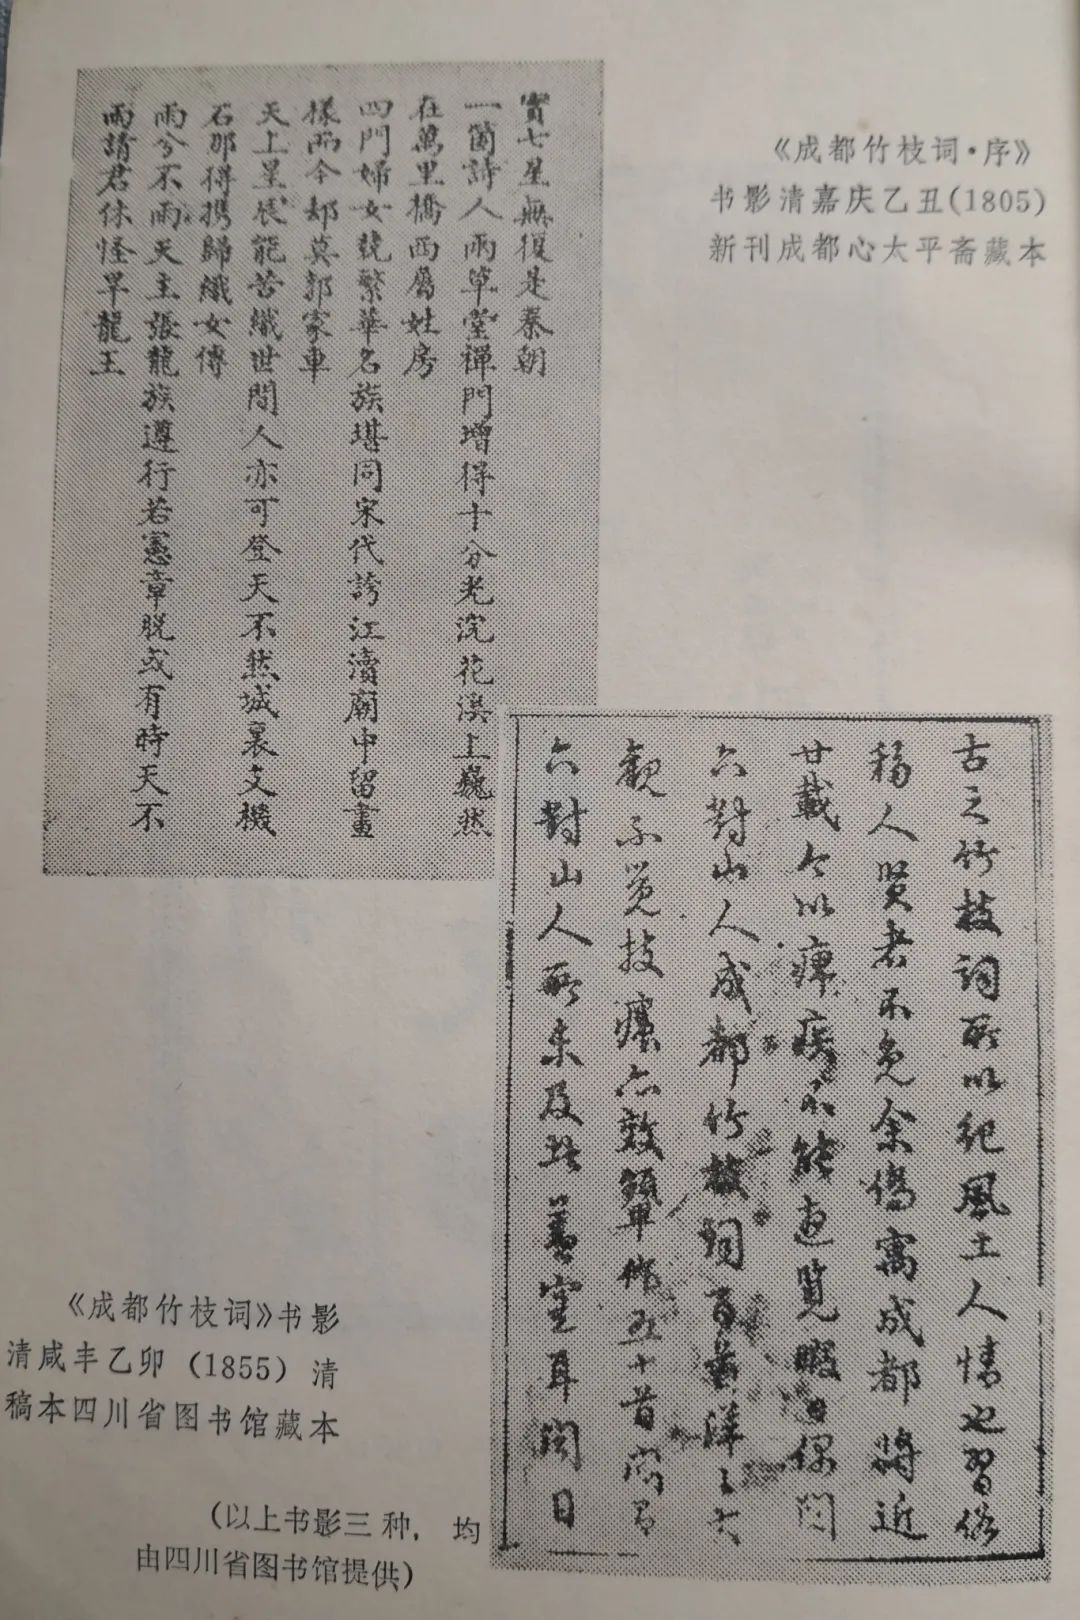 《成都竹枝词·序》
书影清嘉庆乙丑(1805)
新刊成都心太平斋藏本
寳七星無復是秦朝
一箇詩人兩草堂禪門增得十分光浣花溪上巍然
在萬里橋西屬姓房
四門婦女競繁華名族堪同宋代誇江瀆廟中留畫
樣而今却莫郭家車
天上星辰能苦織世間人亦可登天不然城裏支機
石那得携歸織女傳
雨兮不雨天主張龍族遵行若憲章脱或有時天不
雨請君休怪旱龍王
古之竹枝詞所以紀風土人情也習俗
移人賢者不免余僑寓成都將近
廿載今以痺疾不能遊覽暇日偶閱
六對山人成都竹枝詞百首洋洋大
觀不覺技癢亦效顰作五十首尚有
六對山人所未及此蓋室耳聞日
《成都竹枝词》书影
清咸丰乙卯（1855）清
稿本四川省图书馆藏本
(以上书影三种，均
由四川省图书馆提供)